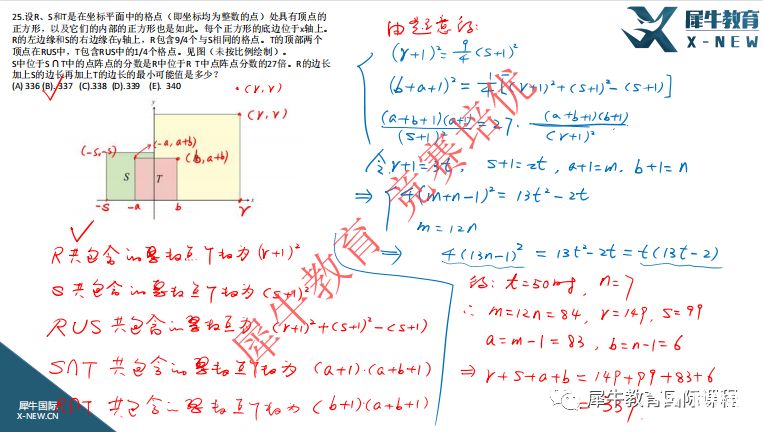 25.设R、S和T是在坐标平面中的格点（即坐标均为整数的点）处具有顶点的
正方形，以及它们的内部的正方形也是如此。每个正方形的底边位于x轴上。
R的左边缘和S的右边缘在y轴上，R包含9/4个与S相同的格点。T的顶部两个
顶点在RUS中，T包含RUS中的1/4个格点。见图（未按比例绘制）。
S中位于S∩T中的点阵点的分数是R中位于R T中点阵点分数的27倍。R的边长
加上S的边长再加上T的边长的最小可能值是多少？
(A) 336 (B). 337 (C).338 (D).339 (E). 340
(r, r)
(r, r)
(-s,-s)
(-a, a+b)
(b, a+b)
S
T
x
y
-s
-a
b
r
R共包含
点个数为(r+1)²
S共包含
点个数为(s+1)²
RUS共包含
点为 (r+1)²+(s+1)²-(s+1)
S∩T 共包含
点个数为 (a+1)·(a+b+1)
R∩T 共包含
点个数为 (b+1)(a+b+1)
由题意得:
(r+1)² = 9/4 (s+1)²
(b+a+1)² = 1/4 [(r+1)²+(s+1)²-(s+1)]
(a+b+1)(a+1)/(s+1)² = 27· (a+b+1)(b+1)/(r+1)²
设 r+1=3t, s+1=2t, a+1=m, b+1=n
⇒ 4(m+n-1)² = 13t²-2t
m=12n
⇒ 4(13n-1)² = 13t²-2t = t(13t-2)
t=50时, n=7
∴ m=12n=84, r=149, s=99
a=m-1=83, b=n-1=6
⇒ r+s+a+b = 149+99+83+6
= 337
犀牛教育
X-NEW
犀牛教育 竞赛培优
犀牛国际
X-NEW.CN
犀牛教育国际课程